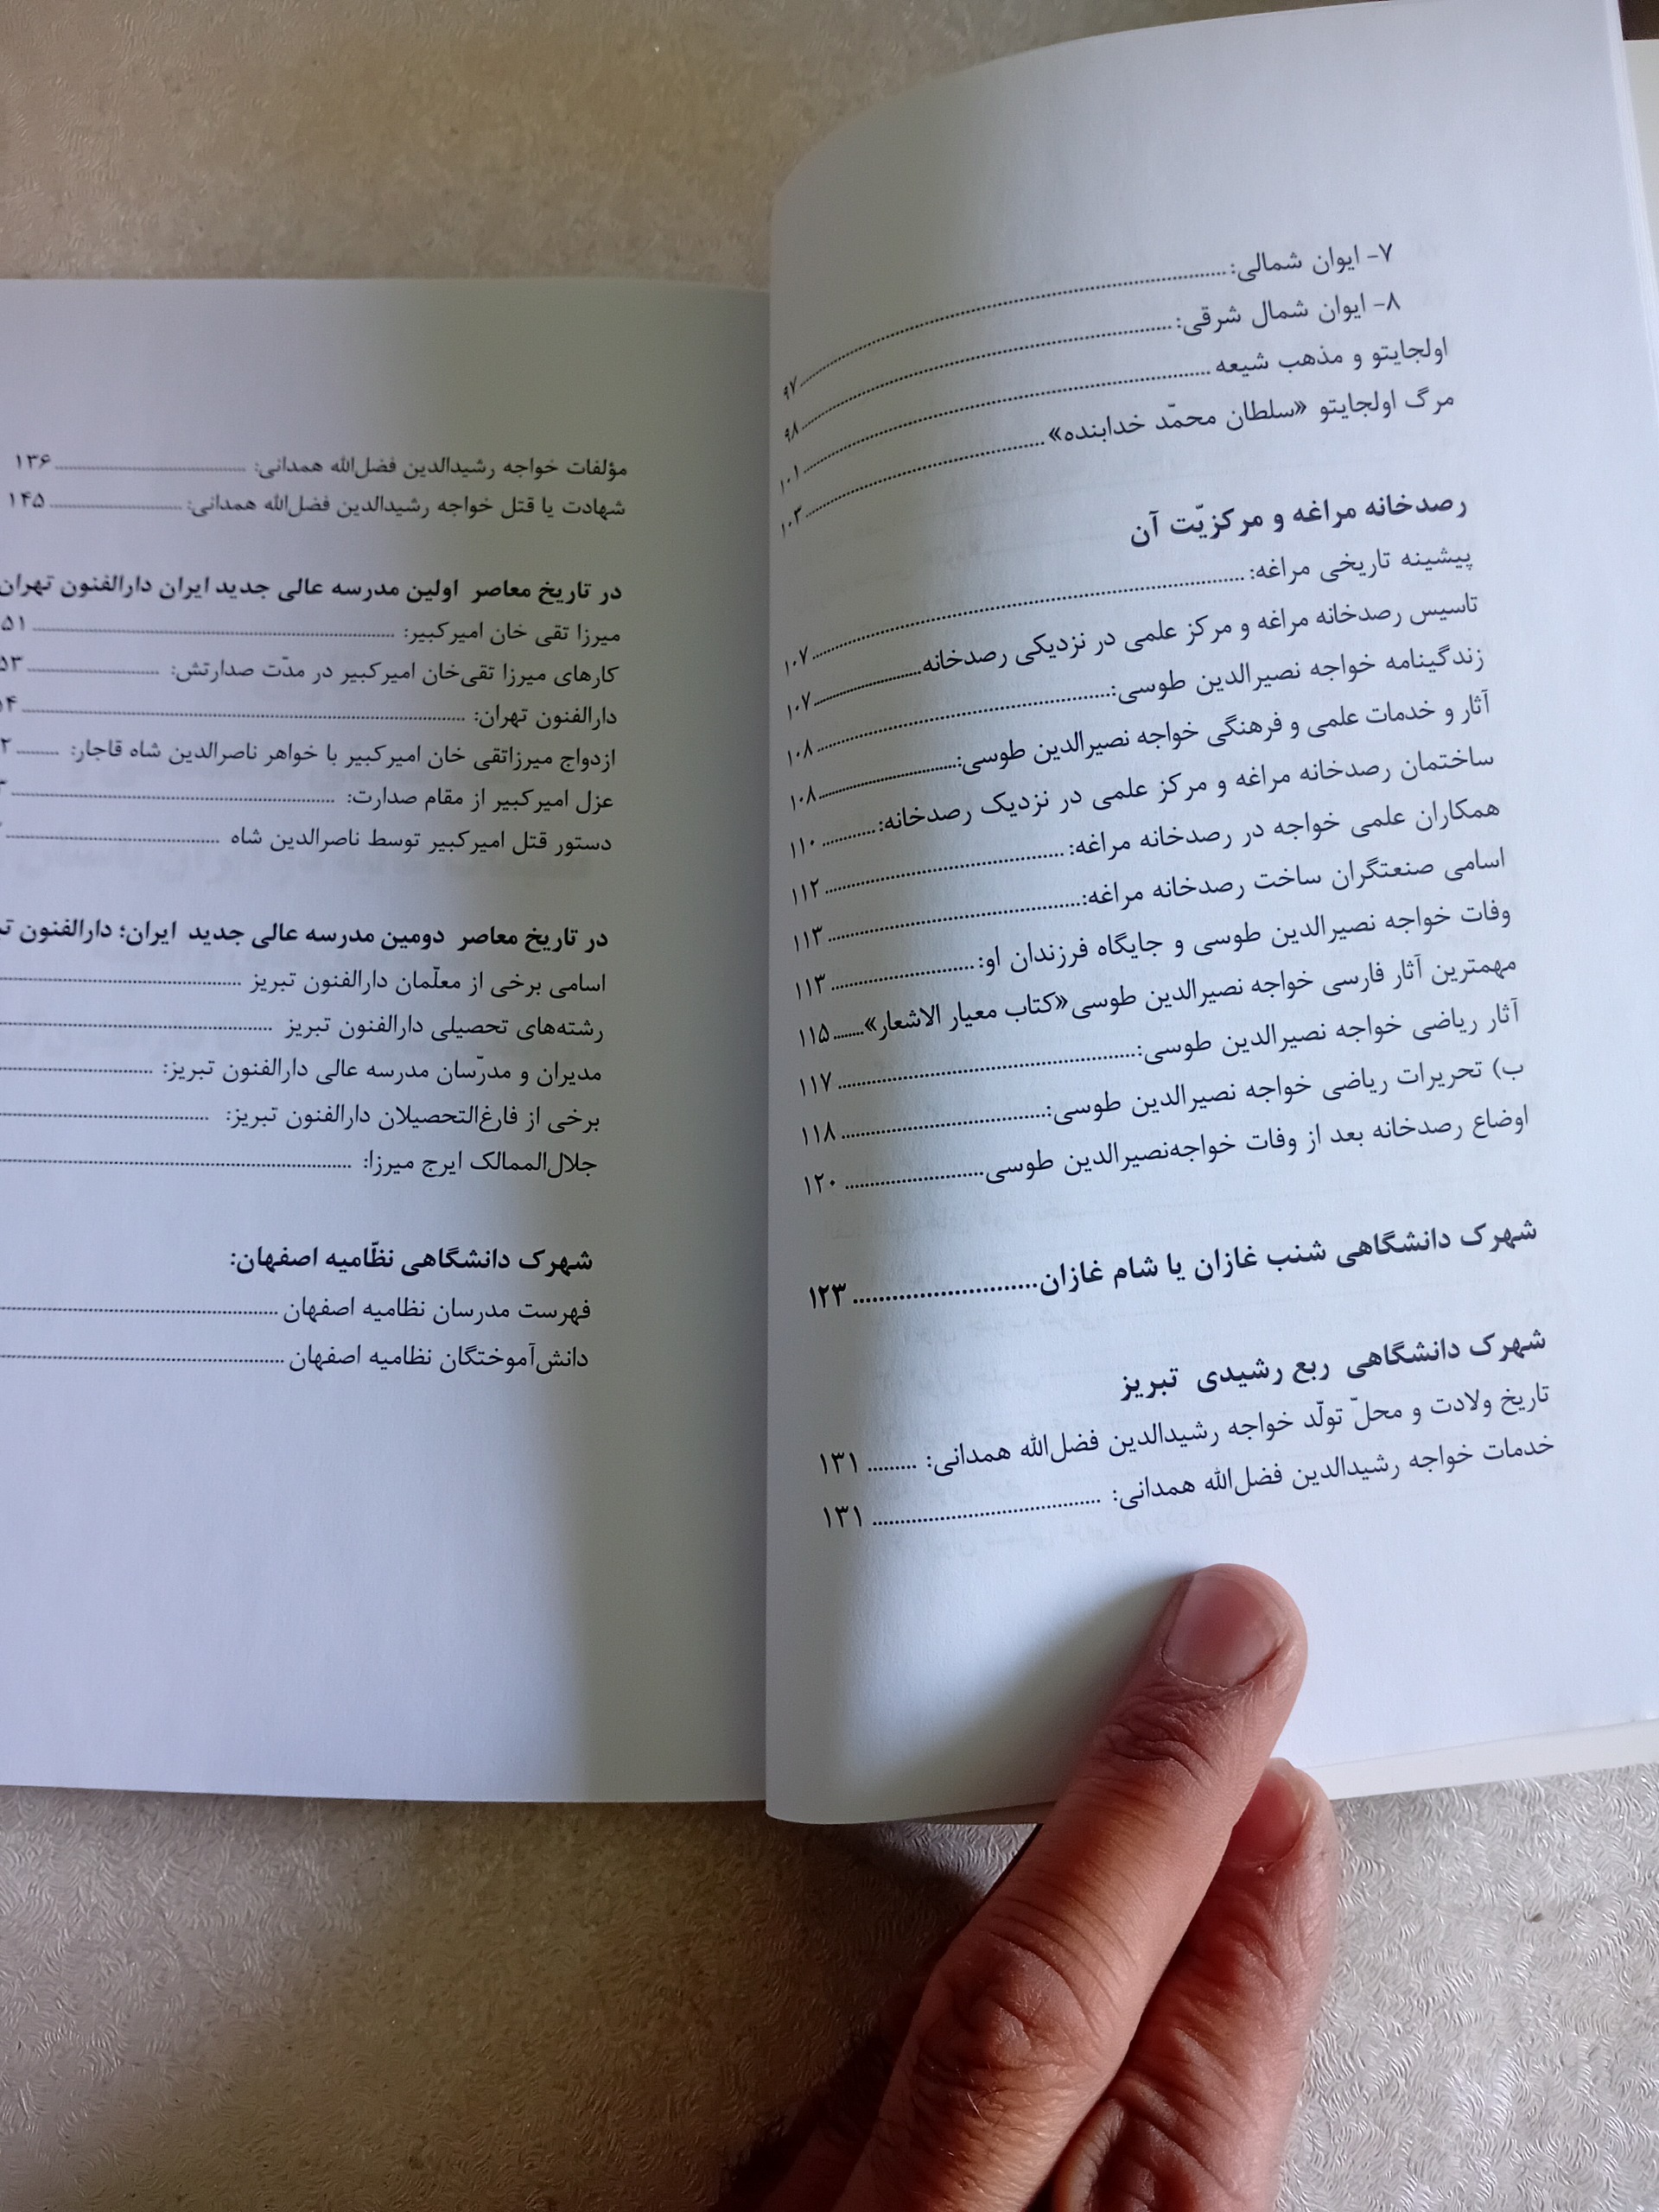 ۷- ایوان شمالی: ۹۷
۸- ایوان شمال شرقی: ۹۸
اولجایتو و مذهب شیعه ۱۰۱
مرگ اولجایتو «سلطان محمّد خدابنده» ۱۰۳
رصدخانه مراغه و مرکزیّت آن
پیشینه تاریخی مراغه: ۱۰۷
تاسیس رصدخانه مراغه و مرکز علمی در نزدیکی رصدخانه ۱۰۷
زندگینامه خواجه نصیرالدین طوسی: ۱۰۸
آثار و خدمات علمی و فرهنگی خواجه نصیرالدین طوسی: ۱۰۸
ساختمان رصدخانه مراغه و مرکز علمی در نزدیک رصدخانه: ۱۱۰
همکاران علمی خواجه در رصدخانه مراغه: ۱۱۲
اسامی صنعتگران ساخت رصدخانه مراغه: ۱۱۳
وفات خواجه نصیرالدین طوسی و جایگاه فرزندان او: ۱۱۳
مهمترین آثار فارسی خواجه نصیرالدین طوسی «کتاب معیار الاشعار» ۱۱۵
آثار ریاضی خواجه نصیرالدین طوسی: ۱۱۷
ب) تحریرات ریاضی خواجه نصیرالدین طوسی: ۱۱۸
اوضاع رصدخانه بعد از وفات خواجه‌نصیرالدین طوسی ۱۲۰
شهرک دانشگاهی شنب غازان یا شام غازان ۱۲۳
شهرک دانشگاهی ربع رشیدی تبریز
تاریخ ولادت و محلّ تولّد خواجه رشیدالدین فضل‌الله همدانی: ۱۳۱
خدمات خواجه رشیدالدین فضل‌الله همدانی: ۱۳۱
مؤلفات خواجه رشیدالدین فضل‌الله همدانی: ۱۳۶
شهادت یا قتل خواجه رشیدالدین فضل‌الله همدانی: ۱۴۵
در تاریخ معاصر اولین مدرسه عالی جدید ایران دارالفنون تهران
میرزا تقی خان امیرکبیر: ۵۱
کارهای میرزا تقی‌خان امیرکبیر در مدّت صدارتش: ۵۳
دارالفنون تهران:
ازدواج میرزاتقی خان امیرکبیر با خواهر ناصرالدین شاه قاجار:
عزل امیرکبیر از مقام صدارت:
دستور قتل امیرکبیر توسط ناصرالدین شاه
در تاریخ معاصر دومین مدرسه عالی جدید ایران؛ دارالفنون
اسامی برخی از معلّمان دارالفنون تبریز
رشته‌های تحصیلی دارالفنون تبریز
مدیران و مدرّسان مدرسه عالی دارالفنون تبریز:
برخی از فارغ‌التحصیلان دارالفنون تبریز:
جلال‌الممالک ایرج میرزا:
شهرک دانشگاهی نظّامیه اصفهان:
فهرست مدرسان نظامیه اصفهان
دانش‌آموختگان نظامیه اصفهان